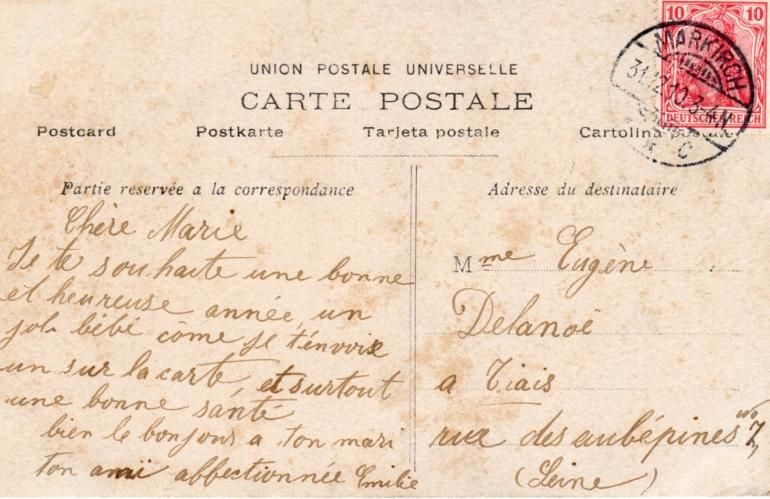 UNION POSTALE UNIVERSELLE
CARTE POSTALE
Postcard Postkarte Tarjeta postale Cartolina
10 10
MARKIRCH
31.12.10.3-4N
* C
DEUTSCHES REICH
Partie reservée a la correspondance
Chère Marie
Je te souhaite une bonne
et heureuse année, un
joli bébé côme je t'envoie
un sur la carte, et surtout
une bonne santé
bien le bonjour a ton mari
ton ami abbectionnée Emilie
Adresse du destinataire
Mme Eugène
Delanoë
a Tiais
rue des aubépines No 7,
(Seine)